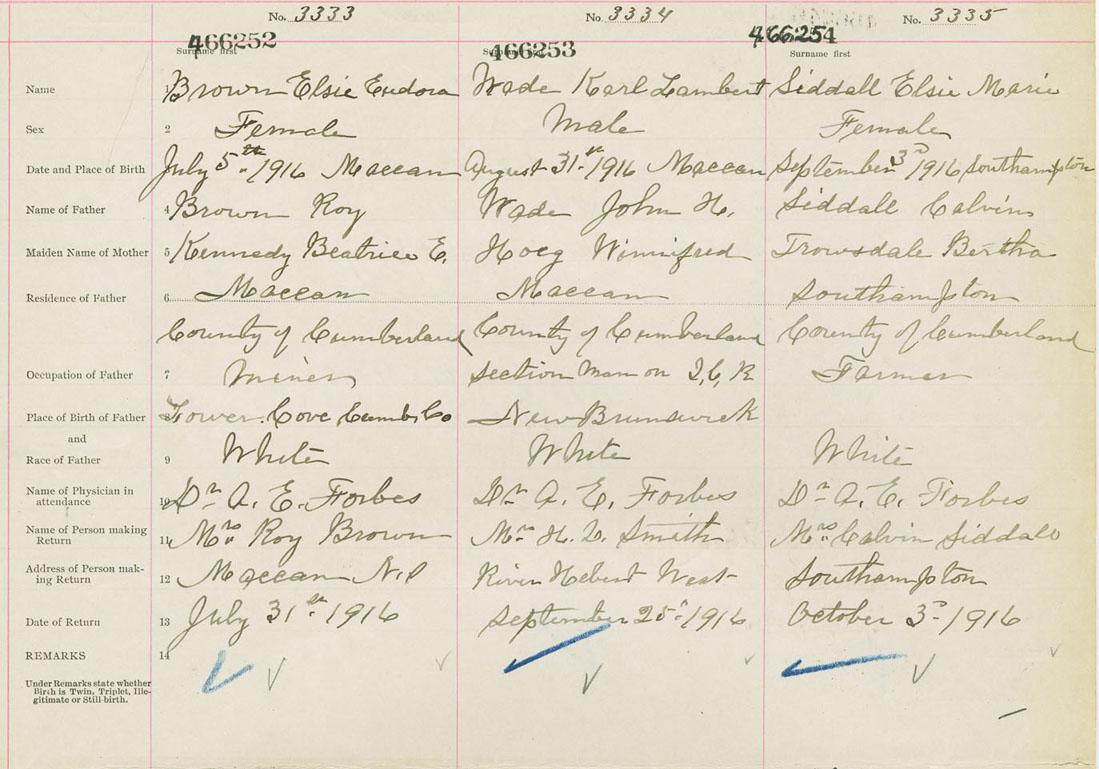 No. 3333 No. 3334 No. 3335
466252 466253 466254
Surname first Surname first Surname first
Name 1 Brown Elsie Eudora Wade Karl Lambert Siddall Elsie Marie
Sex 2 Female Male Female
Date and Place of Birth July 5th 1916 Maccan August 31st 1916 Maccan September 3rd 1916 Southampton
Name of Father 4 Brown Roy Wade John H. Siddall Calvin
Maiden Name of Mother 5 Kennedy Beatrice E. Hoeg Winnifred Trowsdale Bertha
Residence of Father 6 Maccan Maccan Southampton
County of Cumberland County of Cumberland County of Cumberland
Occupation of Father 7 Miner Section Man on I.C.R Farmer
Place of Birth of Father Lower Cove Cumb. Co New Brunswick
and
Race of Father 9 White White White
Name of Physician in
attendance 10 Dr A. E. Forbes Dr A. E. Forbes Dr A. E. Forbes
Name of Person making
Return 11 Mrs Roy Brown Mrs H. L. Smith Mrs Calvin Siddall
Address of Person mak-
ing Return 12 Maccan N.S River Hebert West Southampton
Date of Return 13 July 31st 1916 September 25th 1916 October 3rd 1916
REMARKS 14
Under Remarks state whether
Birth is Twin, Triplet, Ille-
gitimate or Still-birth.